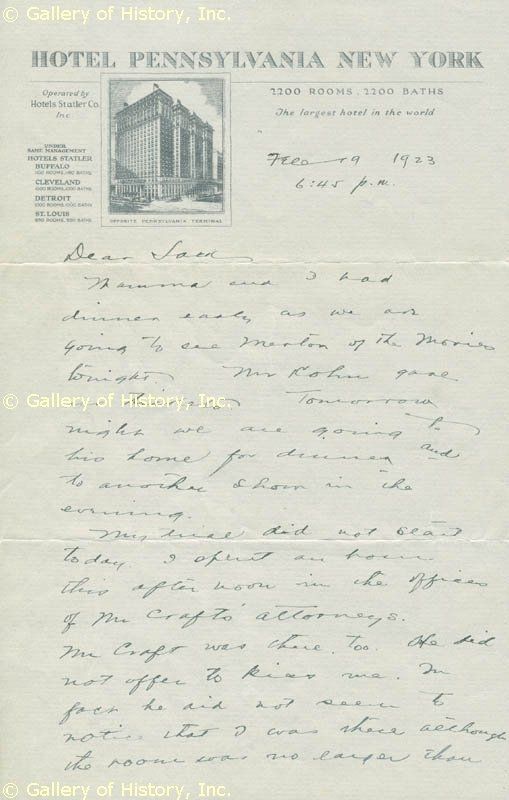 © Gallery of History, Inc.
HOTEL PENNSYLVANIA NEW YORK
Operated by
Hotels Statler Co.
Inc
2200 ROOMS, 2200 BATHS
The largest hotel in the world
UNDER
SAME MANAGEMENT
HOTELS STATLER
BUFFALO
CLEVELAND
DETROIT
ST. LOUIS
OPPOSITE PENNSYLVANIA TERMINAL
Feb 19 1923
6:45 p.m.
Dear Jack
Mamma and I had
dinner early as we are
going to see Merton of the Movies
tonight Mr Kohn gave
© Gallery of History, Inc.
© Gallery of History, Inc.
Tomorrow
night we are going to
his home for dinner and
to another show in the
evening.
My trial did not start
today. I spent an hour
this afternoon in the offices
of Mr Crafts' attorneys.
Mr Craft was there, too. He did
not offer to kiss me. In
fact he did not seem to
notice that I was there although
the room was no larger than
© Gallery of History, Inc.